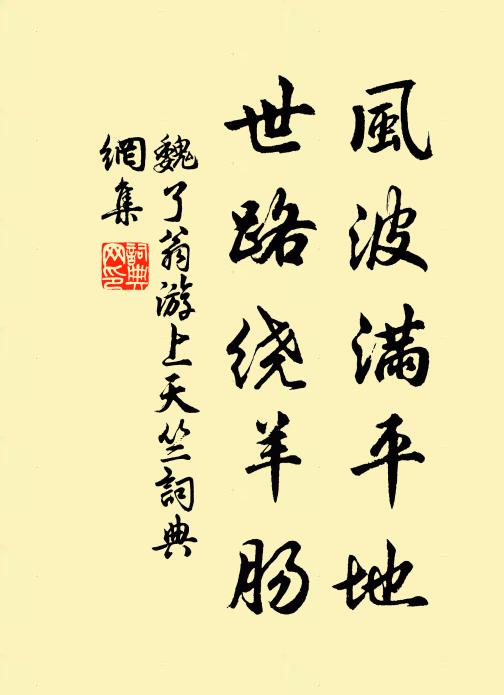 風波滿平地
世路绕羊肠
魏了翁游上天竺詞典
網集
詞典
网印